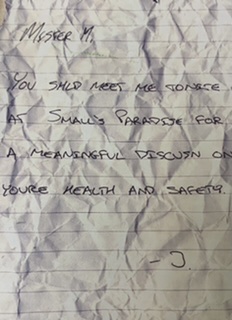 Mister M.
You shld meet me tonite
at Small's Paradise for
a meaningful discusn on
youre health and safety.
- J.